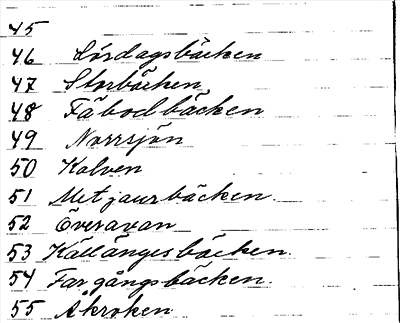 45
46 Lördagsbäcken
47 Storbäcken
48 Fäbodbäcken
49 Norrsjön
50 Kalven
51 Metjaurbäcken.
52 Överavan
53 Källängesbäcken.
54 Fargångsbäcken.
55 Åkroken